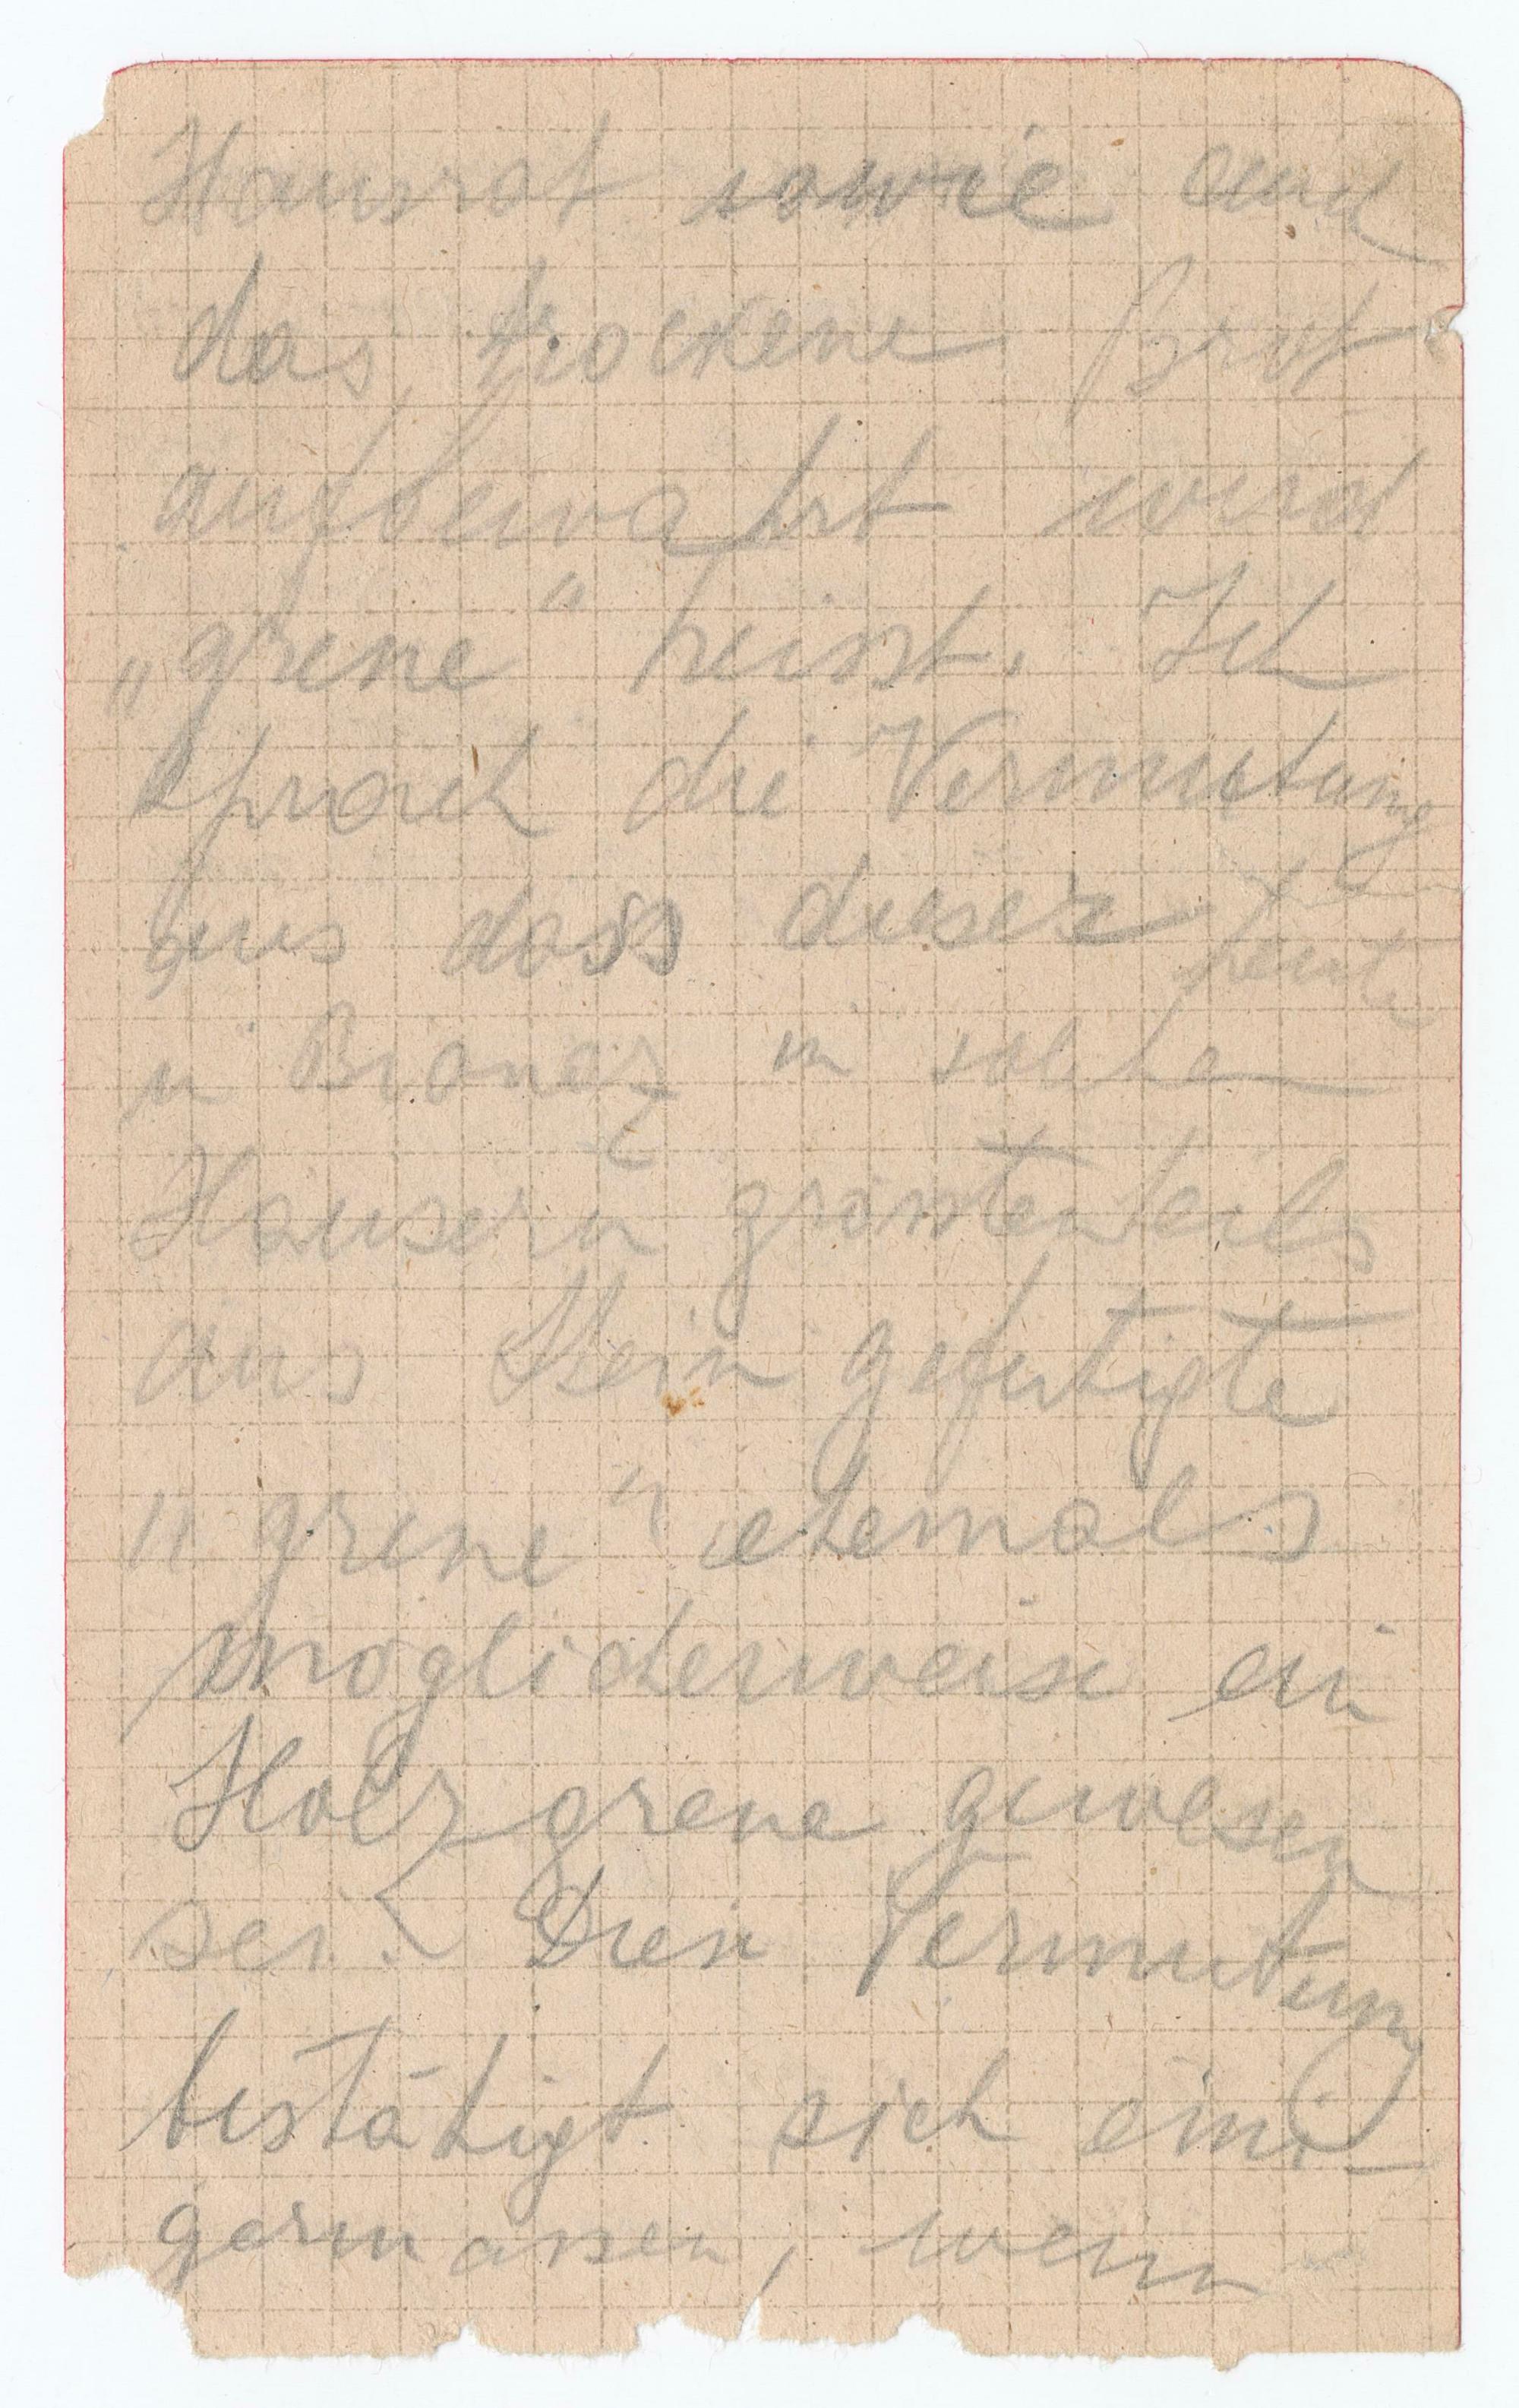 Hausrat sowie auch
das trockene Brot
aufbewahrt wird
„grene" heisst. Ich
sprach die Vermutung
aus dass dieser heute
in Bionaz in solchen
Häusern grösstenteils
aus Stein gefertigte
„grene" ehemals
möglicherweise ein
Holzgrene gewesen
sei. Diese Vermutung
bestätigt sich eini-
germassen, wenn